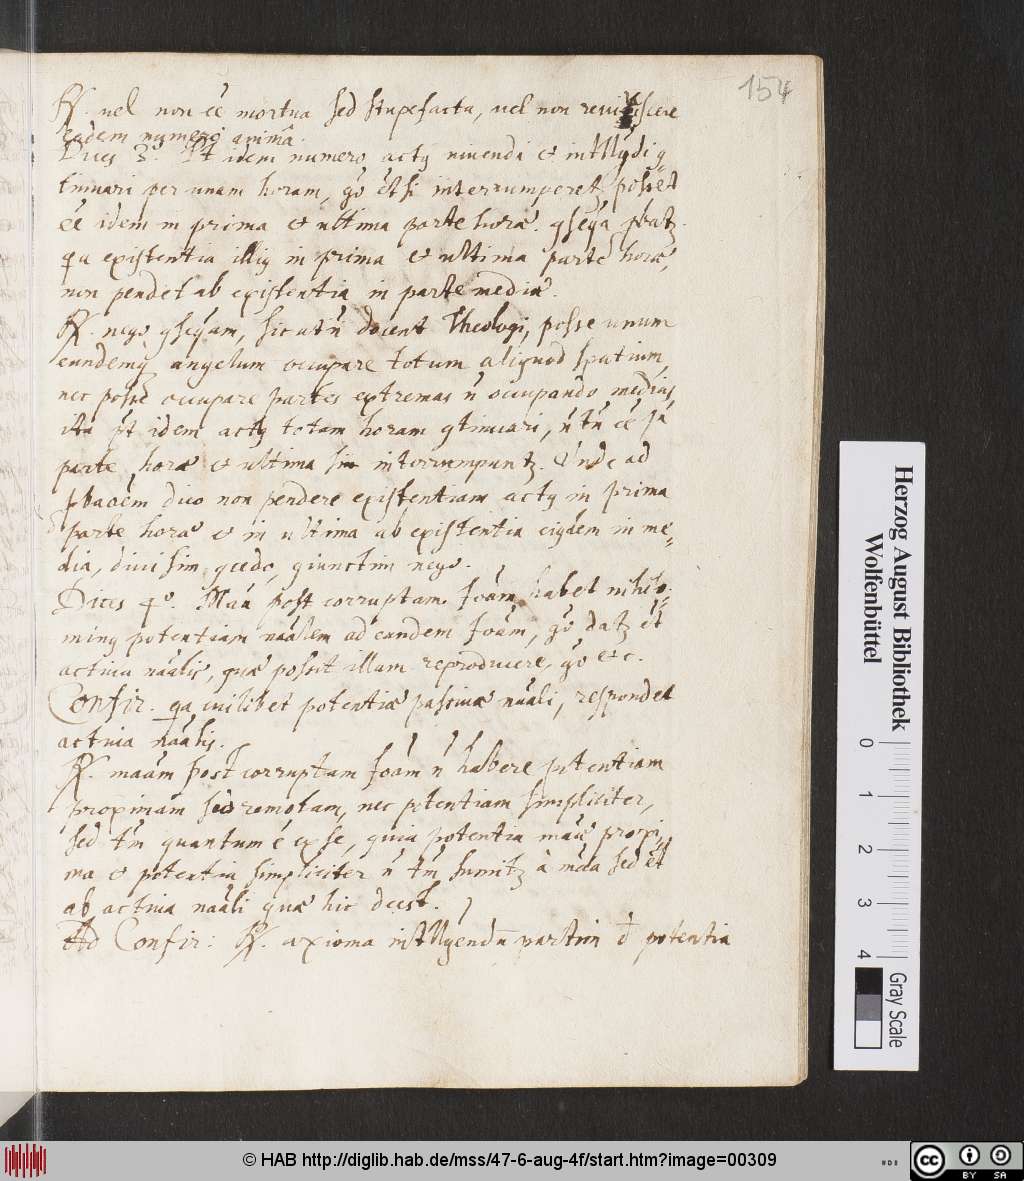 154
R. vel non ēē mortua sed stupefacta, vel non reviviscere
eadem numero animâ.
Dices 3. Pt idem numero actꝰ vivendi & intlligdi ꝯ
tinuari per unam horam, gō etsi interrumperetʒ posset
ēē idem in prima & ultima parte horæ. ꝯseqa pbatʒ.
qa existentia illiꝰ in prima & ultima parte horæ,
non pendet ab existentia in parte media.
R. nego ꝯseqam, sicut n̄ docent Theologi, posse unum
eundemq angelum occupare totum aliquod spatium,
nec posse occupare partes extremas n̄ occupando medias,
ita pt idem actꝰ totam horam ꝯtinuari, n̄ tn̄ ēē
parte horæ & ultima si interrumpantʒ. Unde ad
pbaōēm dico non pendere existentiam actꝰ in prima
parte horæ & in ultima ab existentia eiꝰdem in me=
dia, divisim ꝯcedo, ꝯiunctim nego.
Dices 4º. Māā post corruptam foām habet nihilo=
minꝰ potentiam nāālem ad eandem foām, gō datʒ et
activa nāālis, quæ possit illam reproducere, gō &c.
Confir. qa cuilibet potentiæ passivæ nāāli, respondet
activa nāālis.
R. māām post corruptam foām n̄ habere potentiam
propinqam sed remotam, nec potentiam simpliciter,
sed tm̄ quantum ē ex se, quia potentia māæ propi=
nqa & potentia simpliciter n̄ tm̄ sumitʒ à māa sed et
ab activa nāāli quæ hic deest.
Ad Confir: R. axioma intlligendū partim d potentia
Herzog August Bibliothek
Wolfenbüttel
0 1 2 3 4
Gray Scale
© HAB http://diglib.hab.de/mss/47-6-aug-4f/start.htm?image=00309
cc BY SA